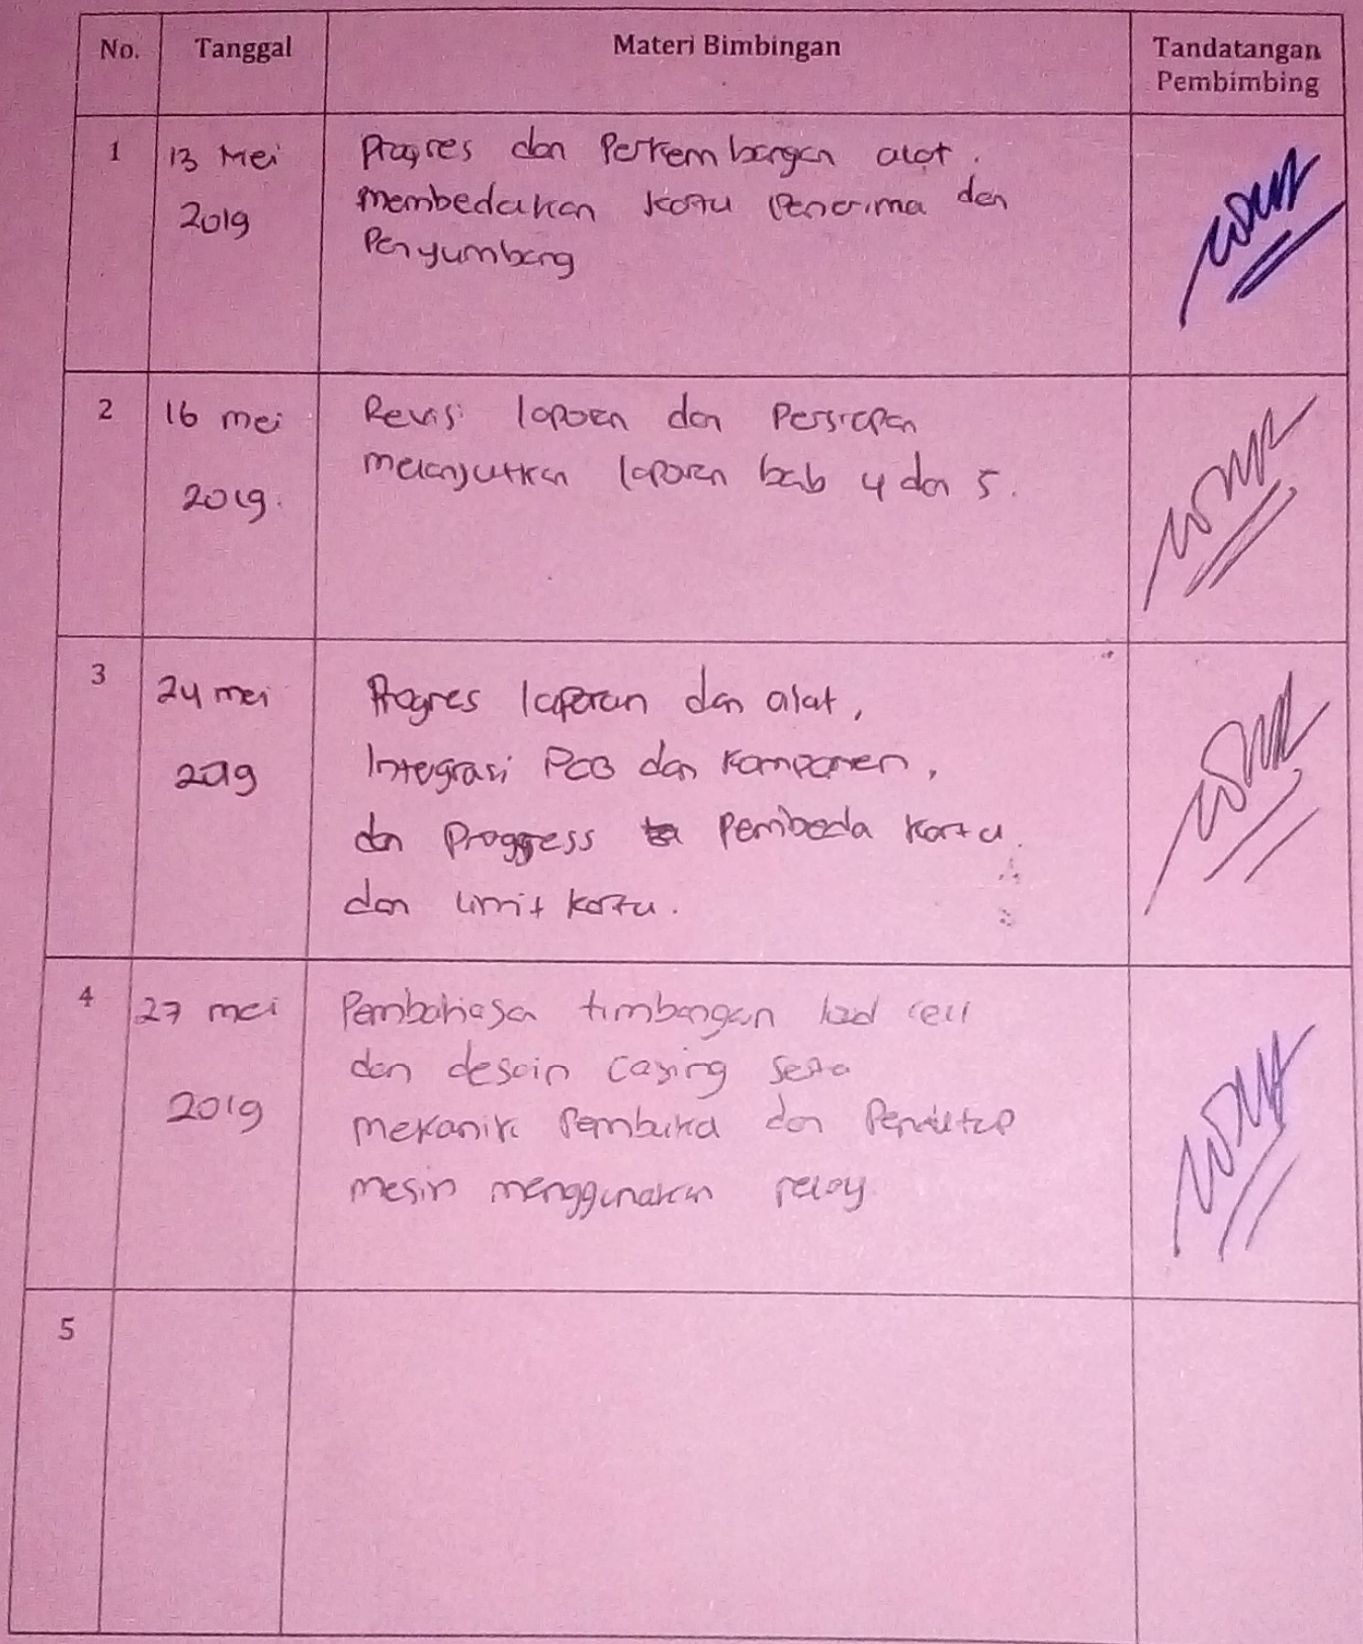 No. Tanggal Materi Bimbingan Tandatangan
Pembimbing
1 13 Mei Progres dan Perkembangan alat.
2019 membedakan kartu Penerima dan
Penyumbang
2 16 mei Revisi laporan dan Persiapan
2019. melanjutkan laporan bab 4 dan 5.
3 24 mei Progres laporan dan alat,
2019 Integrasi PCB dan Komponen,
dan Proggress Pembeda kartu
dan limit kartu.
4 27 mei Pembahasa timbangan load cell
dan desain casing serta
2019 mekanik Pembuka dan Penutup
mesin menggunakan relay
5